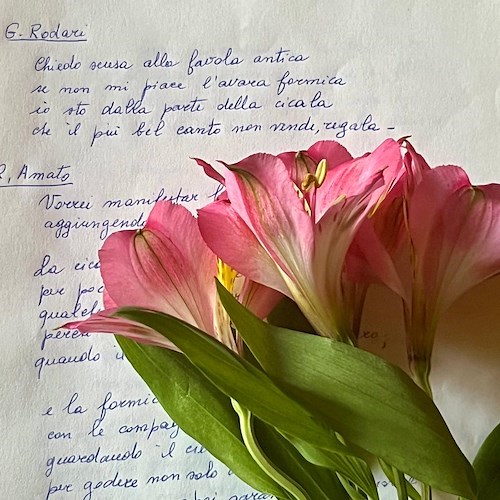 G. Rodari
Chiedo scusa alla favola antica
se non mi piace l'avara formica
io sto dalla parte della cicala
che il più bel canto non vende, regala -
R. Amato
Vorrei manifestar
aggiungend
La cic
per poc
qualch
perch
quando i
e la formic
con le compag
guardando il ci
per godere non solo